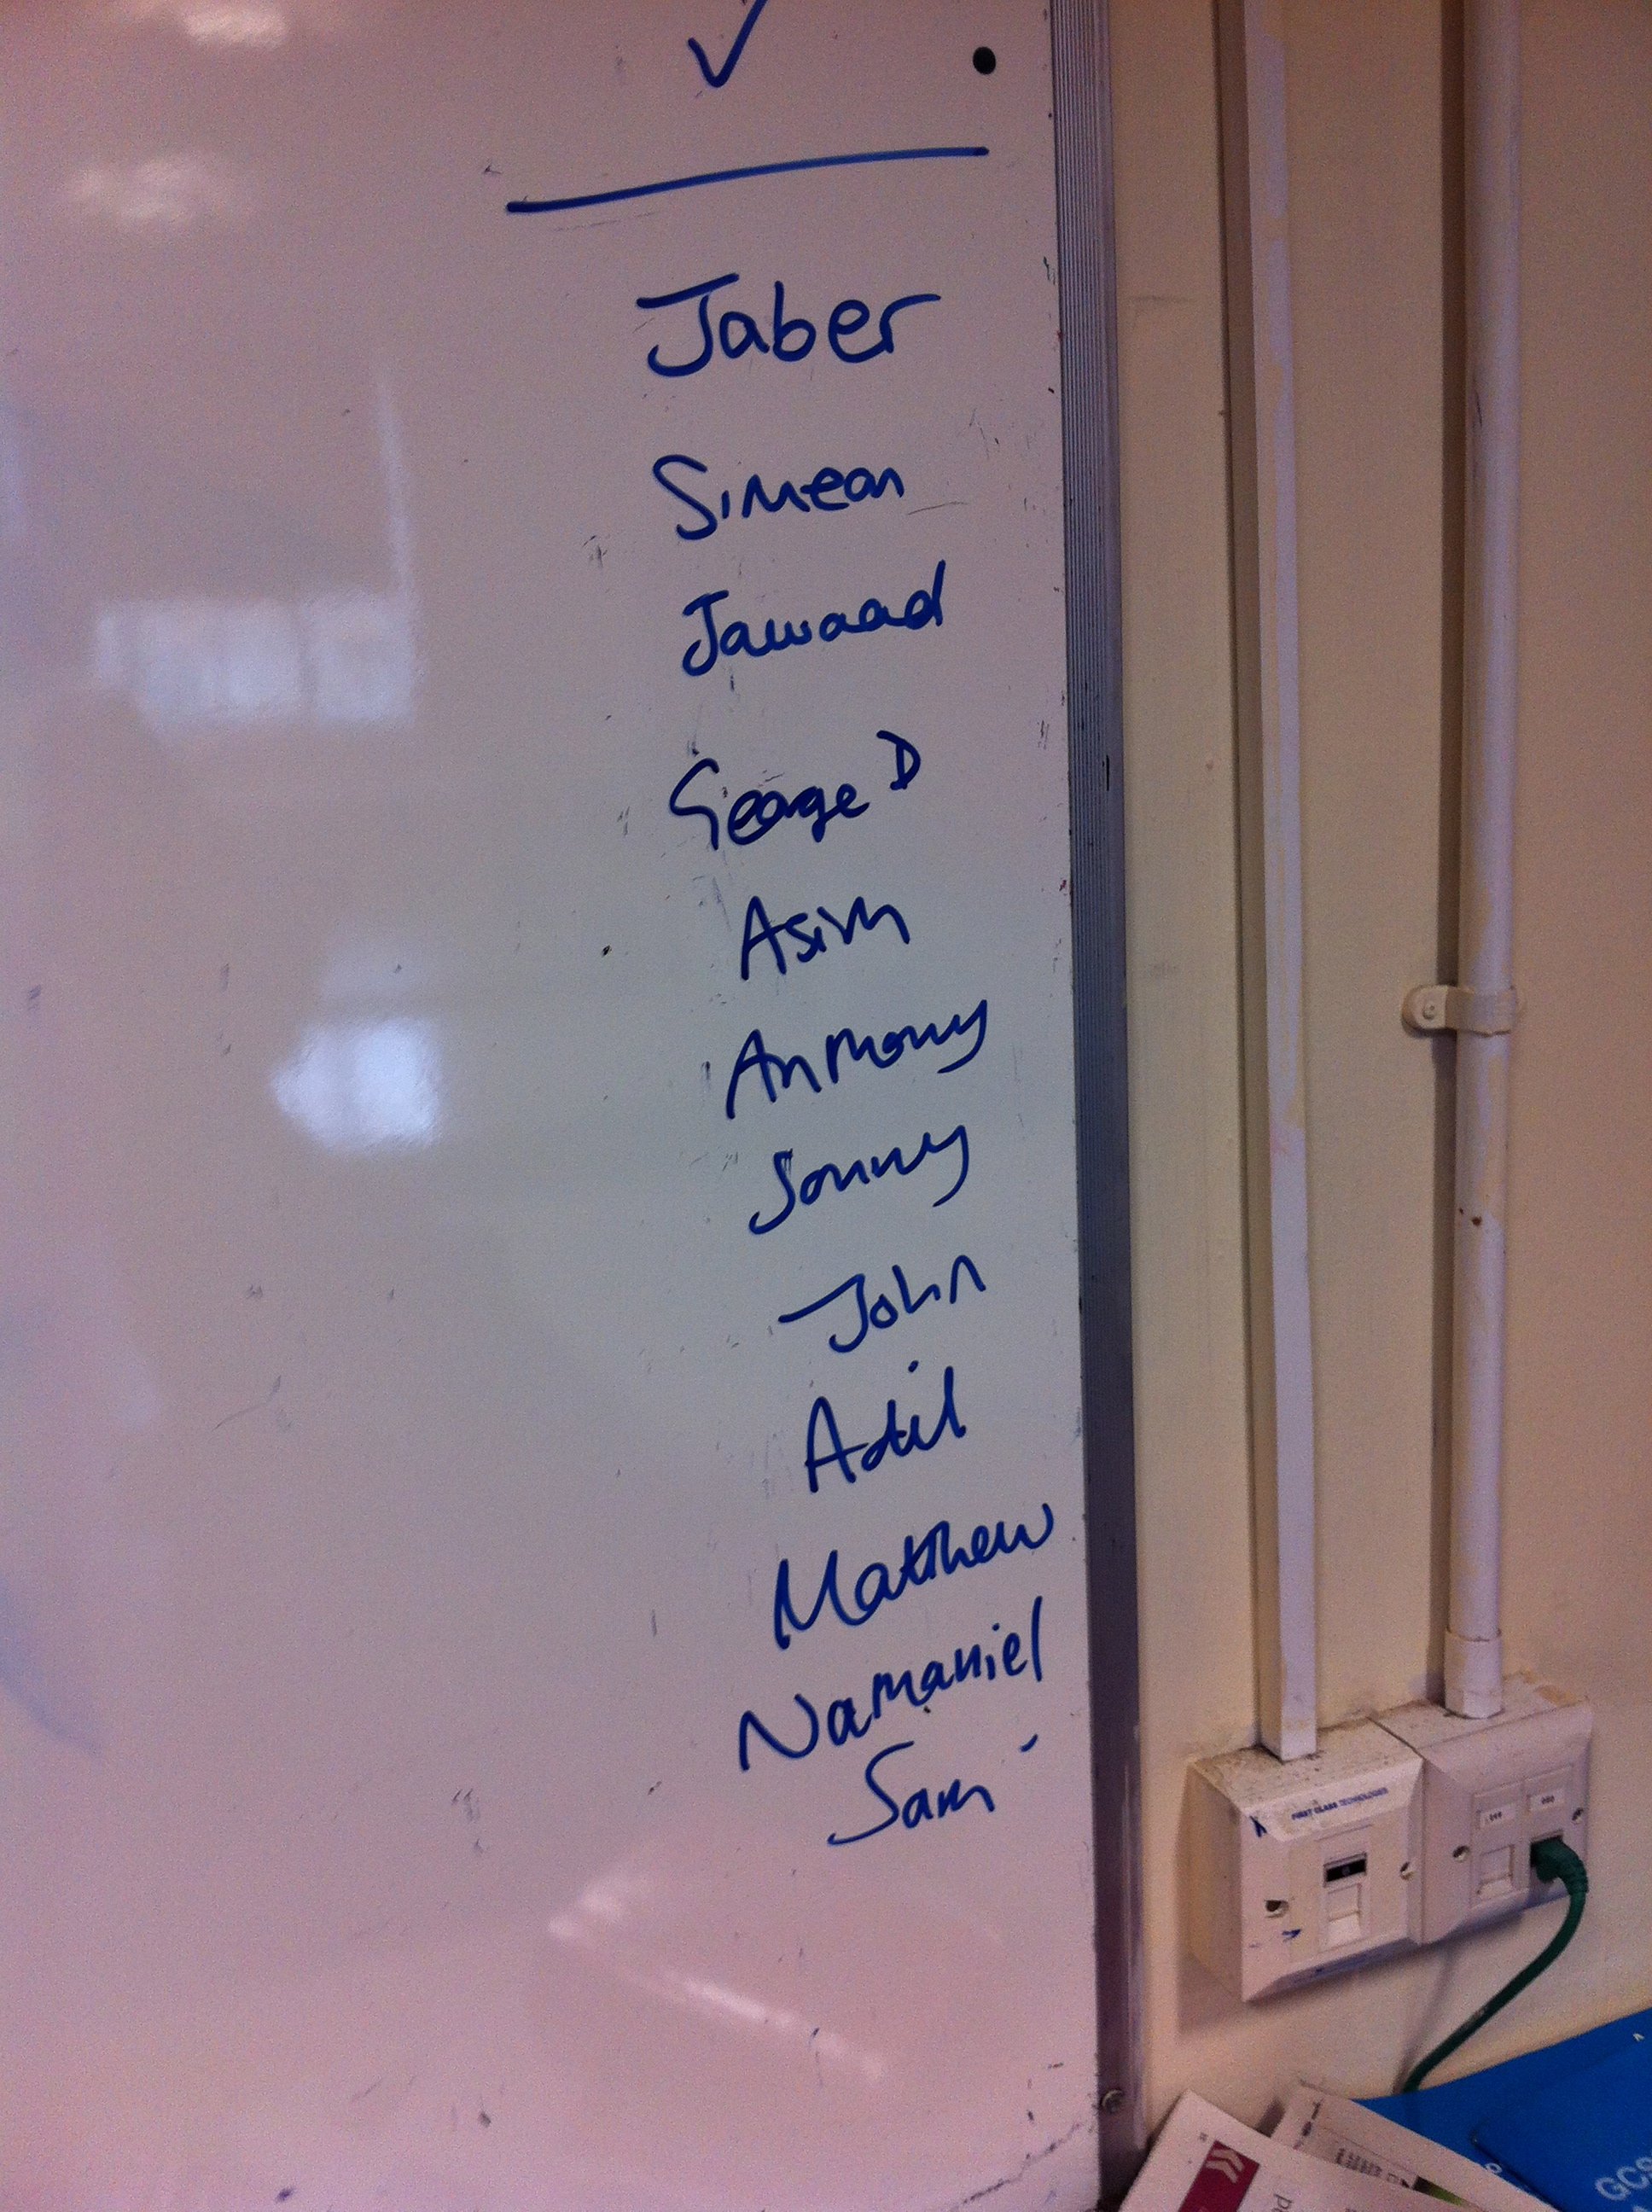 ✓
Jaber
Simeon
Jawaad
George D
Asim
Anthony
Sonny
John
Adil
Matthew
Nathaniel
Sam
FIRST CLASS TECHNOLOGIES
GCS